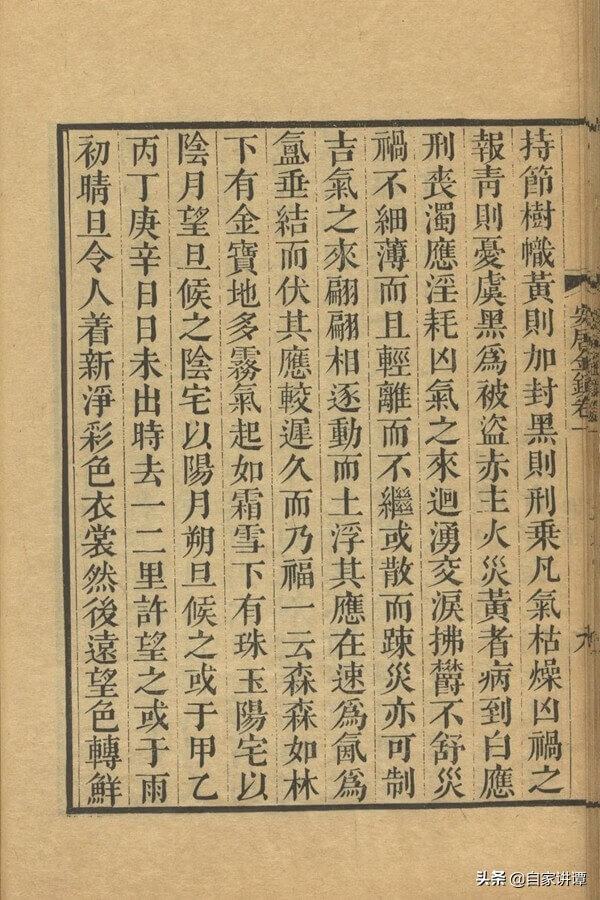 持節樹幟黃則加封黑則刑乘凡氣枯燥凶禍之
報靑則憂虞黑爲被盜赤主火災黃者病到白應
刑喪濁應淫耗凶氣之來迴湧交淚拂欝不舒災
禍不細薄而且輕離而不繼或散而踈災亦可制
吉氣之來翩翩相逐動而土浮其應在速爲氤爲
氳垂結而伏其應較遲久而乃福一云森森如林
下有金寶地多霧氣起如霜雪下有珠玉陽宅以
陰月望旦候之陰宅以陽月朔旦候之或于甲乙
丙丁庚辛日日未出時去一二里許望之或于雨
初晴旦令人着新淨彩色衣裳然後遠望色轉鮮
卷一
九
头条 @自家讲谭